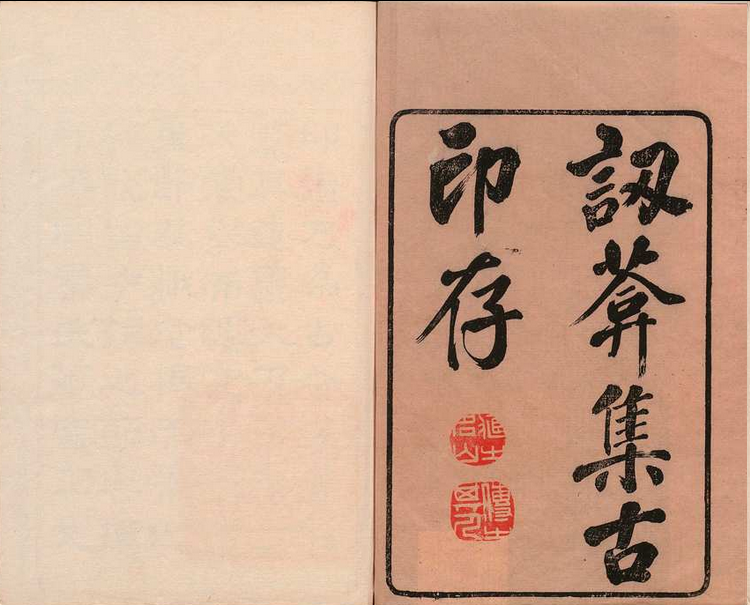 訒葊集古
印存